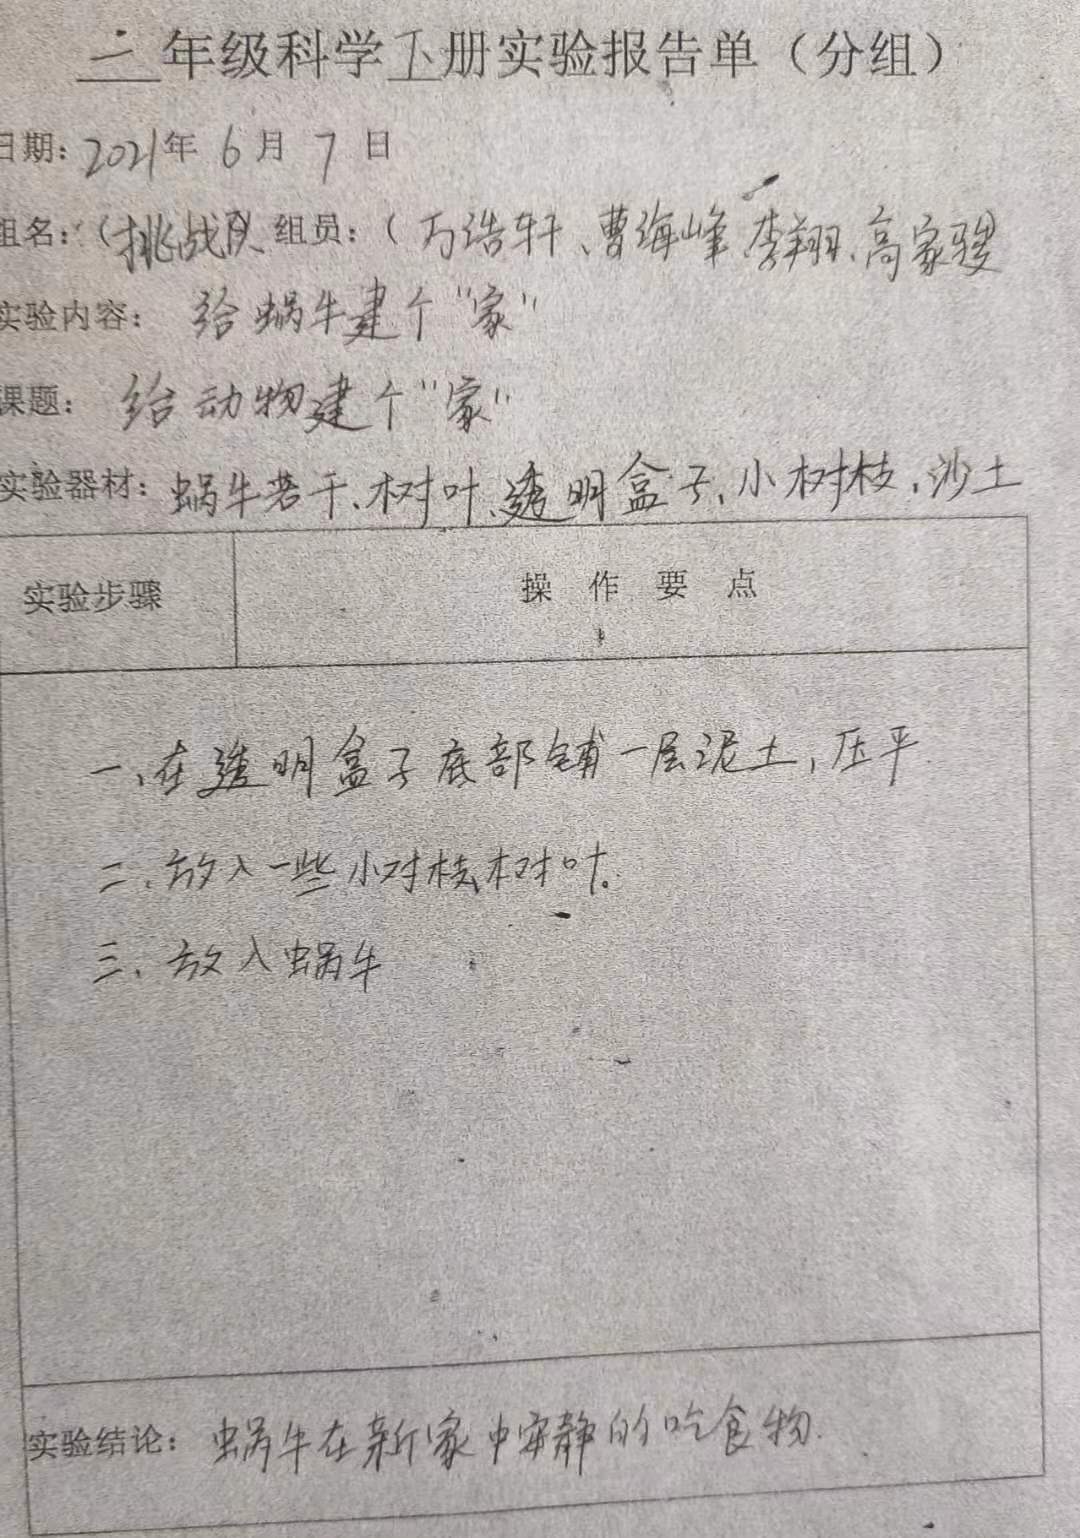 二年级科学下册实验报告单（分组）
日期：2021年 6 月 7 日
组名：（挑战队 组员：（万浩轩、曹海峰 李翔、高家骏
实验内容： 给蜗牛建个“家”
课题： 给动物建个“家”
实验器材：蜗牛若干、树叶、透明盒子、小树枝，沙土
实验步骤 操作要点
一、在透明盒子底部铺一层泥土，压平.
二、放入一些小树枝、树叶。
三、放入蜗牛
实验结论： 蜗牛在新家中安静的吃食物.